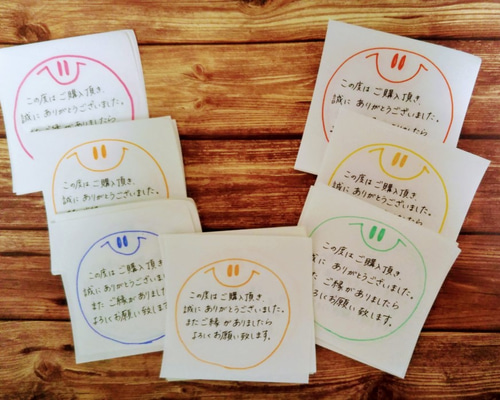 この度は ご購入頂き
誠に ありがとうございました。
この度は ご購入頂き
誠に ありがとうございました。
この度は ご購入頂き
誠に ありがとうございました。
この度は ご購入頂き
誠に ありがとうございました。
この度は ご購入頂き
誠に ありがとうございました。
また ご縁が ありました
よろしくお願い致します
この度は ご購入頂き
誠に ありがとうございました。
また ご縁が ありましたら
よろしくお願い致します。
この度は ご購入頂き
誠に ありがとうございました。
また ご縁が ありましたら
よろしくお願い致します。